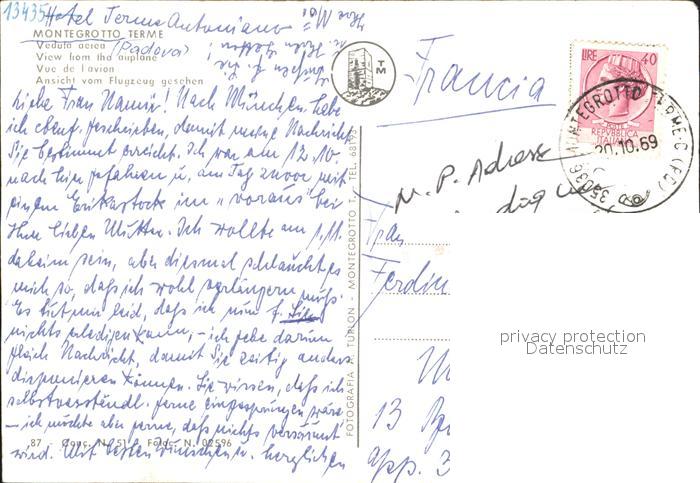 13435 Hotel Terme Antoniano
MONTEGROTTO TERME
Veduta aerea (Padova)
View from the airplane
Vue de l'avion
Ansicht vom Flugzeug gesehen
TM
Francia
LIRE 40
REPVBBLICA
ITALIANA
35036 MONTEGROTTO TERME-C (PD)
20.10.69
Liebe Frau Nanni! Nach München habe
ich ebenf. geschrieben, damit meine Nachricht
Sie bestimmt erreicht. Ich war am 12.10.
nach hier gefahren u. am Tag zuvor mit
einem Erikastock im "voraus" bei
Ihrer lieben Mutter. Ich wollte am 1.11.
daheim sein, aber diesmal schlaucht es
mich so, daß ich wohl verlängern muß.
Es tut mir leid, daß ich nun f.
nichts erledigen kann, – ich gebe darum
gleich Nachricht, damit Sie zeitig anders
disponieren können. Sie wissen, daß ich
selbstverständl. gerne eingesprungen wäre
– ich möchte aber gerne, daß nichts versäumt
wird. Mit besten Wünschen u. herzlichen
87 - Conc. N. 51 - Fold. N. 02596
FOTOGRAFIA A. TURLON - MONTEGROTTO T. - TEL. 68193
N. P. Adress
Frau
Ferdin
13
app. 3
privacy protection
Datenschutz